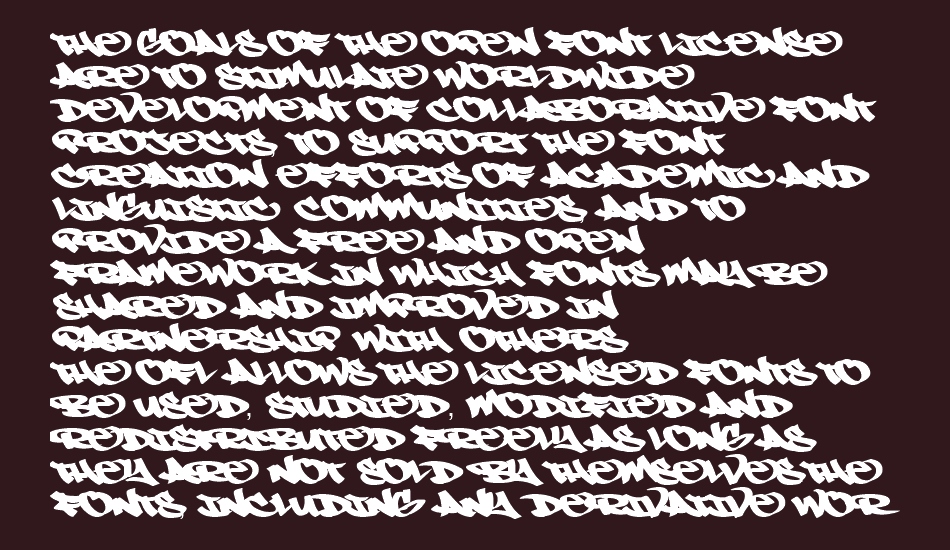 THE GOALS OF THE OPEN FONT LICENSE
ARE TO STIMULATE WORLDWIDE
DEVELOPMENT OF COLLABORATIVE FONT
PROJECTS, TO SUPPORT THE FONT
CREATION EFFORTS OF ACADEMIC AND
LINGUISTIC COMMUNITIES, AND TO
PROVIDE A FREE AND OPEN
FRAMEWORK IN WHICH FONTS MAY BE
SHARED AND IMPROVED IN
PARTNERSHIP WITH OTHERS
THE OFL ALLOWS THE LICENSED FONTS TO
BE USED, STUDIED, MODIFIED AND
REDISTRIBUTED FREELY AS LONG AS
THEY ARE NOT SOLD BY THEMSELVES THE
FONTS, INCLUDING ANY DERIVATIVE WOR